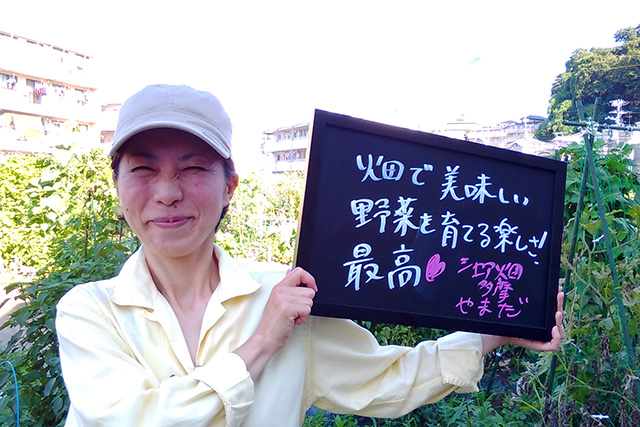 畑で美味しい
野菜を育てる楽しさ!
最高♥
シェア畑
多摩
やまだ